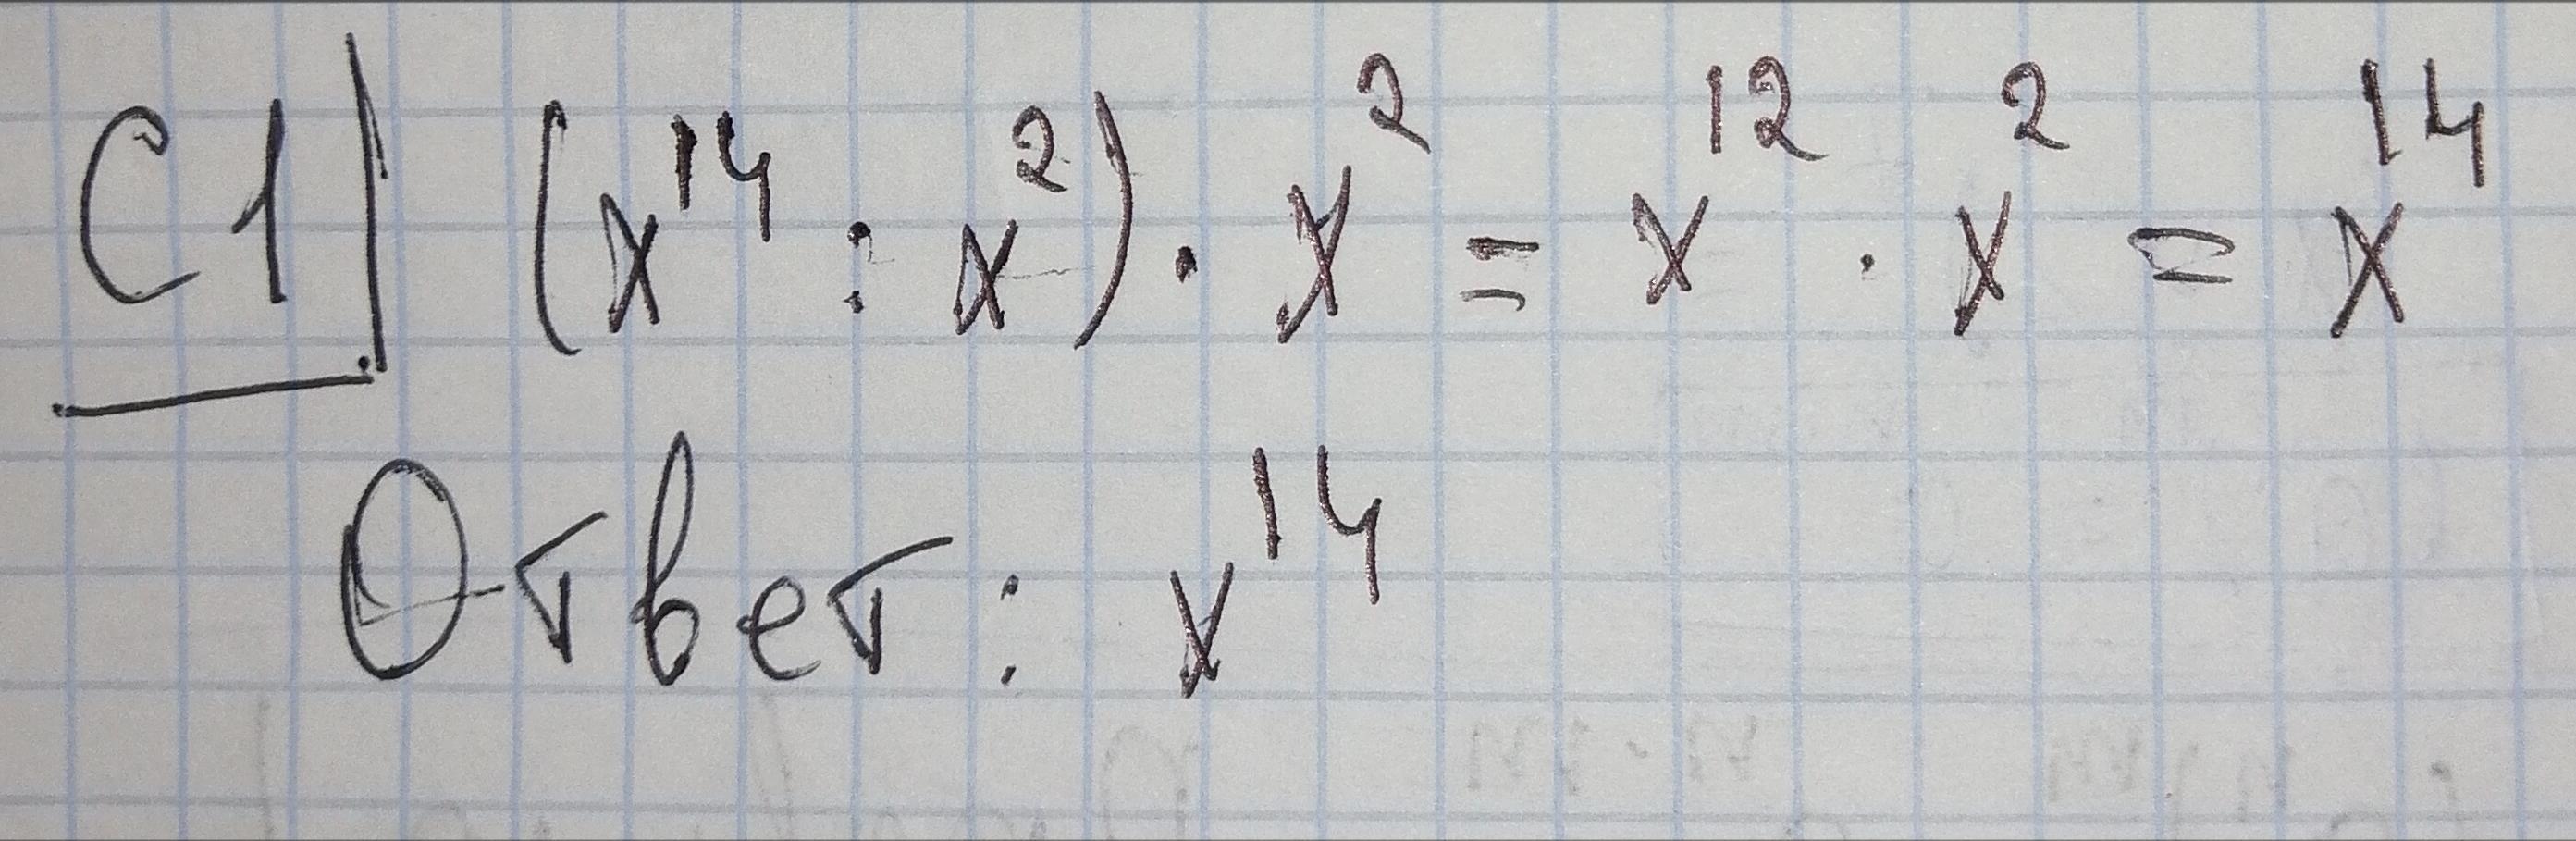 С1) (x¹⁴ : x²) · x² = x¹² · x² = x¹⁴
Ответ: x¹⁴